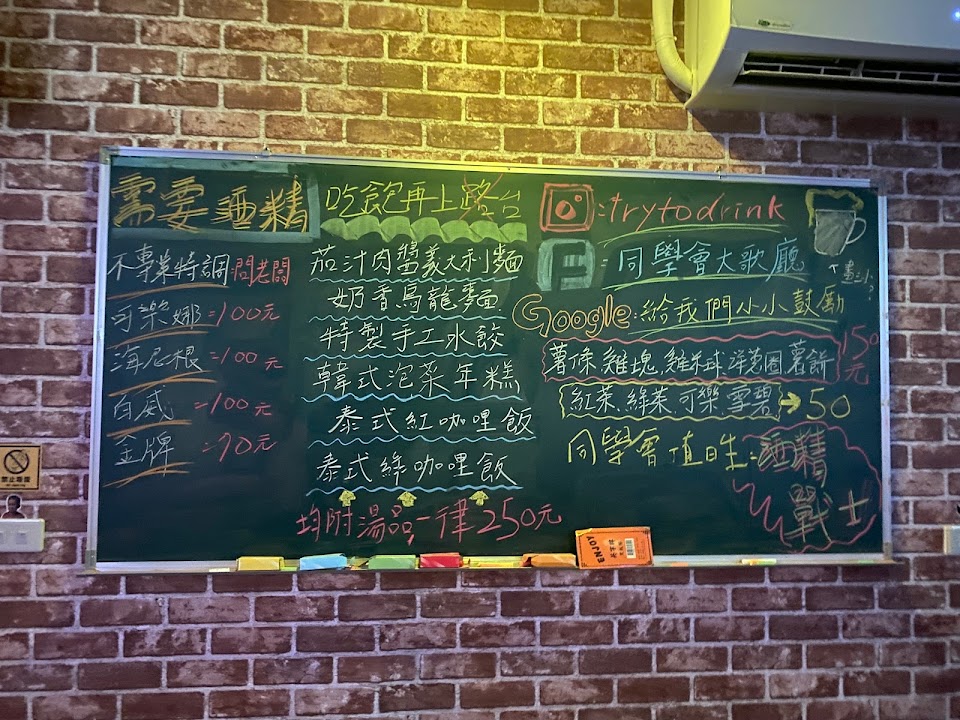 需要酒精
不專業特調:問老闆
可樂娜=100元
海尼根=100元
百威=100元
金牌=90元
吃飽再上路台
茄汁肉醬義大利麵
奶香烏龍麵
特製手工水餃
韓式泡菜年糕
泰式紅咖哩飯
泰式綠咖哩飯
均附湯品,一律250元
:trytodrink
F=同學會大歌廳
↑畫沙?
Google:給我們小小鼓勵
薯條、雞塊、雞米球、洋蔥圈、薯餅
150元
紅茶、綠茶、可樂、雪碧→50
同學會值日生:酒精戰士
ENJOY